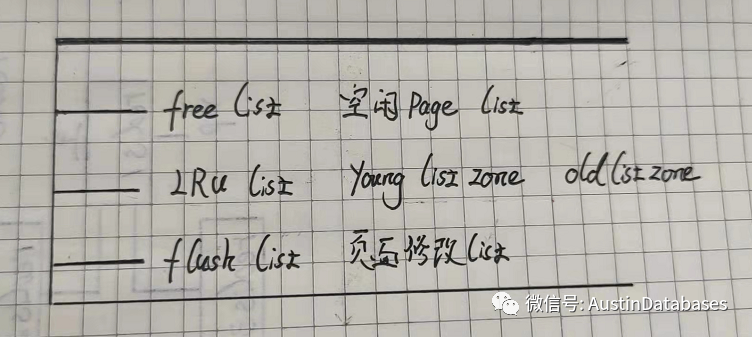 free list 空闲 Page list
LRU list Young list zone old list zone
flush list 页面修改 list
微信号: AustinDatabases